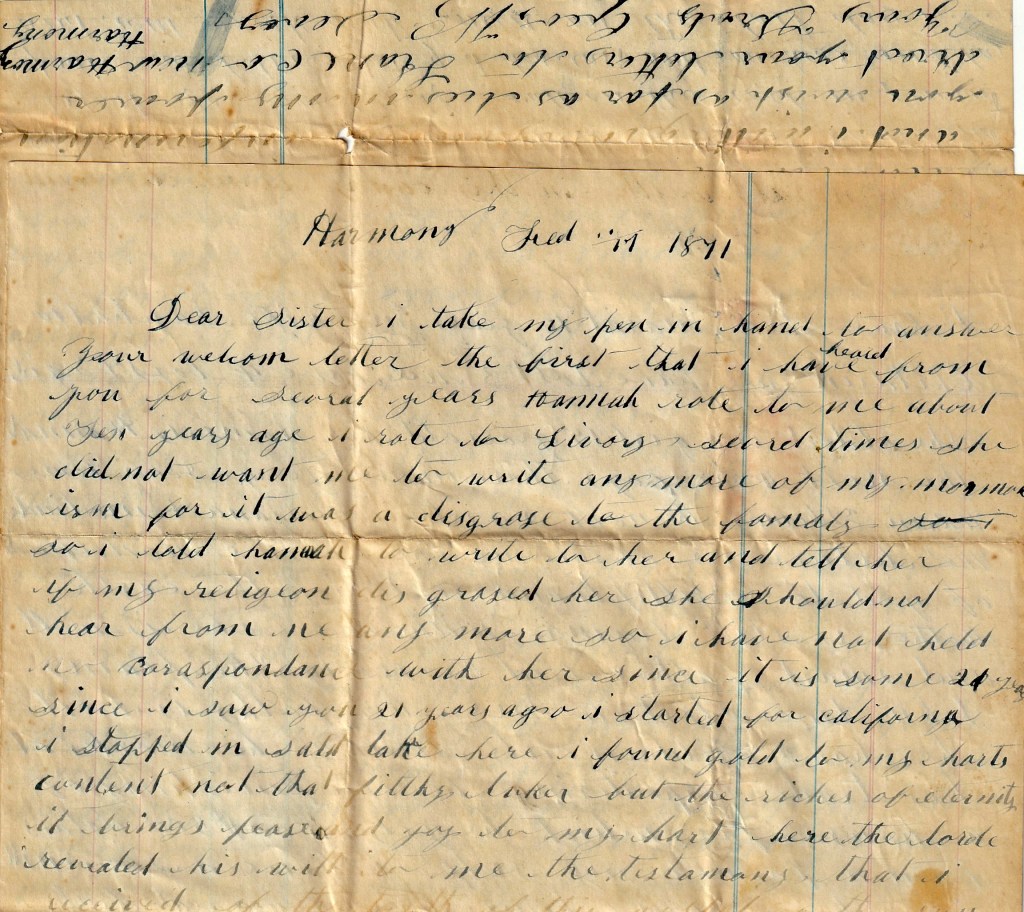 and i will
you wish as far as lies in my power
direct your letters to Kane Co new Harmony
Yours Truly Geo W
Harmony
Harmony Feb 11 1871
Dear Sister i take my pen in hand to answer
your welcom letter the first that i have heard from
you for sevral years Hannah rote to me about
Ten years age i rote to Livory sevrel times she
did not want me to write any more of my mormon
ism for it was a disgrase to the famaly so i
so i told hannah to write to her and tell her
if my religeon disgrased her she should not
hear from me any more so i have not held
no coraspondanc with her since it is some 21 years
since i saw you 21 years ago i started for california
i stopped in salt lake here i found gold to my harts
content not that filthy luker but the riches of eternity
it brings pease and joy to my hart here the lorde
revealed his will to me the testamony that i